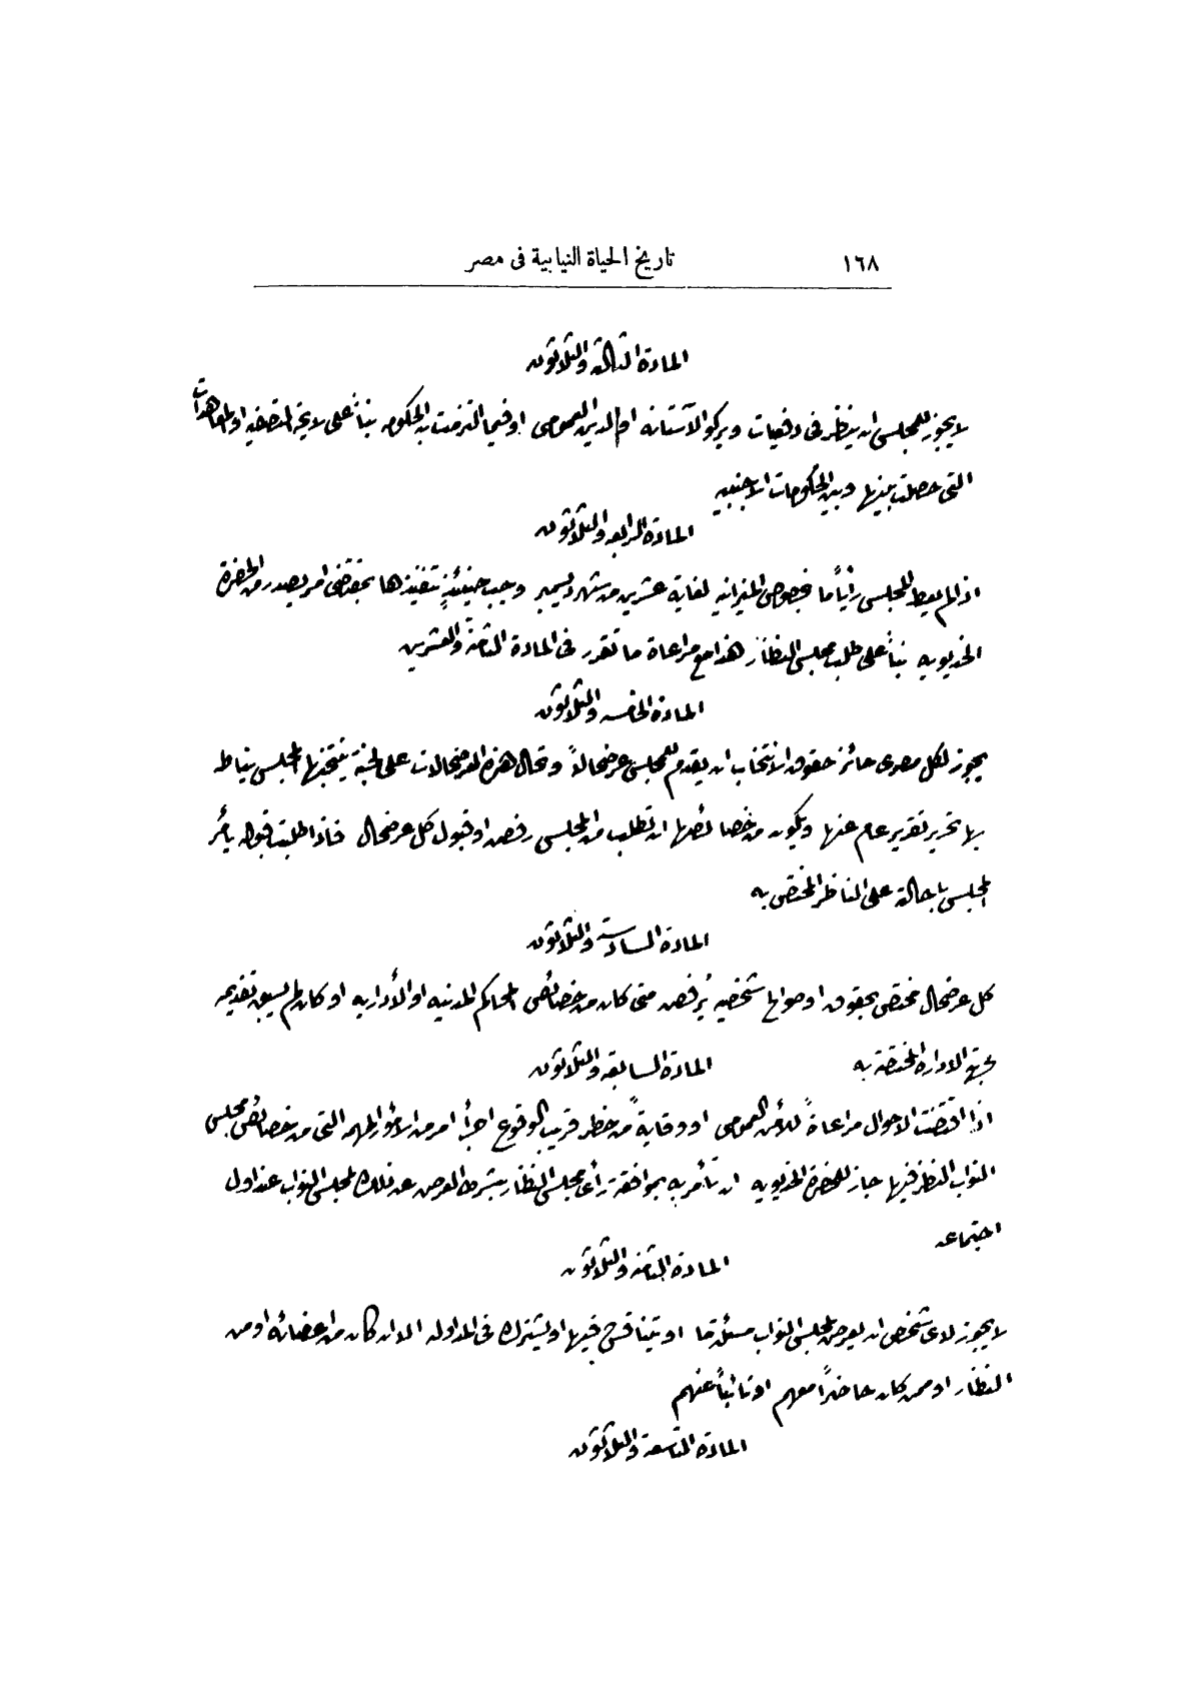 ١٦٨ تاريخ الحياة النيابية فى مصر
المادة الثالثة والثلاثون
لا يجوز للمجلس ان ينظر فى دفعيات ويركو الآستانه او الدين العمومى او فيما التزمت به الحكومه بناءً على لايحة التصفيه او المعاهدات
التى حصلت بينها وبين الحكومات الاجنبيه
المادة الرابعه والثلاثون
اذا لم يعط المجلس رأياً ما بخصوص الميزانيه لغاية عشرين من شهر ديسمبر وجب حينئذٍ تنفيذها بمقتضى امر يصدر من الحضرة
الخديويه بناءً على طلب مجلس النظار هذا مع مراعاة ما تقرر فى المادة الثامنة والعشرين
المادة الخامسه والثلاثون
يجوز لكل مصرى حائز حقوق الانتخاب ان يقدم للمجلس عرضحالاً وتحال هذه العرضحالات على لجنة ينتخبها المجلس يناط
بها تحرير تقرير عام عنها ويكون من خصائصها ان تطلب من المجلس رفض او قبول كل عرضحال فاذا طلبت قبوله يأمر
المجلس باحالته على الناظر المختص به
المادة السادسة والثلاثون
كل عرضحال مختص بحقوق او صوالح شخصيه يُرفض متى كان من خصائص المحاكم المدنيه او الأداريه او كان لم يسبق تقديمه
لجهة الادارة المختصة به
المادة السابعه والثلاثون
اذا اقتضت الاحوال مراعاةً للأمن العمومى او وقايةً من خطر قريب الوقوع اجرأ امر من الامور المهمه التى من خصائص مجلس
النواب النظر فيها جاز للحضرة الخديويه ان تأمر به بموافقة رأى مجلس النظار بشرط العرض عن ذلك لمجلس النواب عند اول
اجتماعه
المادة الثامنه والثلاثون
لا يجوز لاى شخص ان يعرض لمجلس النواب مسئلة ما او يتناقش فيها او يشترك فى المداوله الا ان كان من اعضائه او من
النظار او ممن كان حاضراً معهم او نائباً عنهم
المادة التاسعة والثلاثون